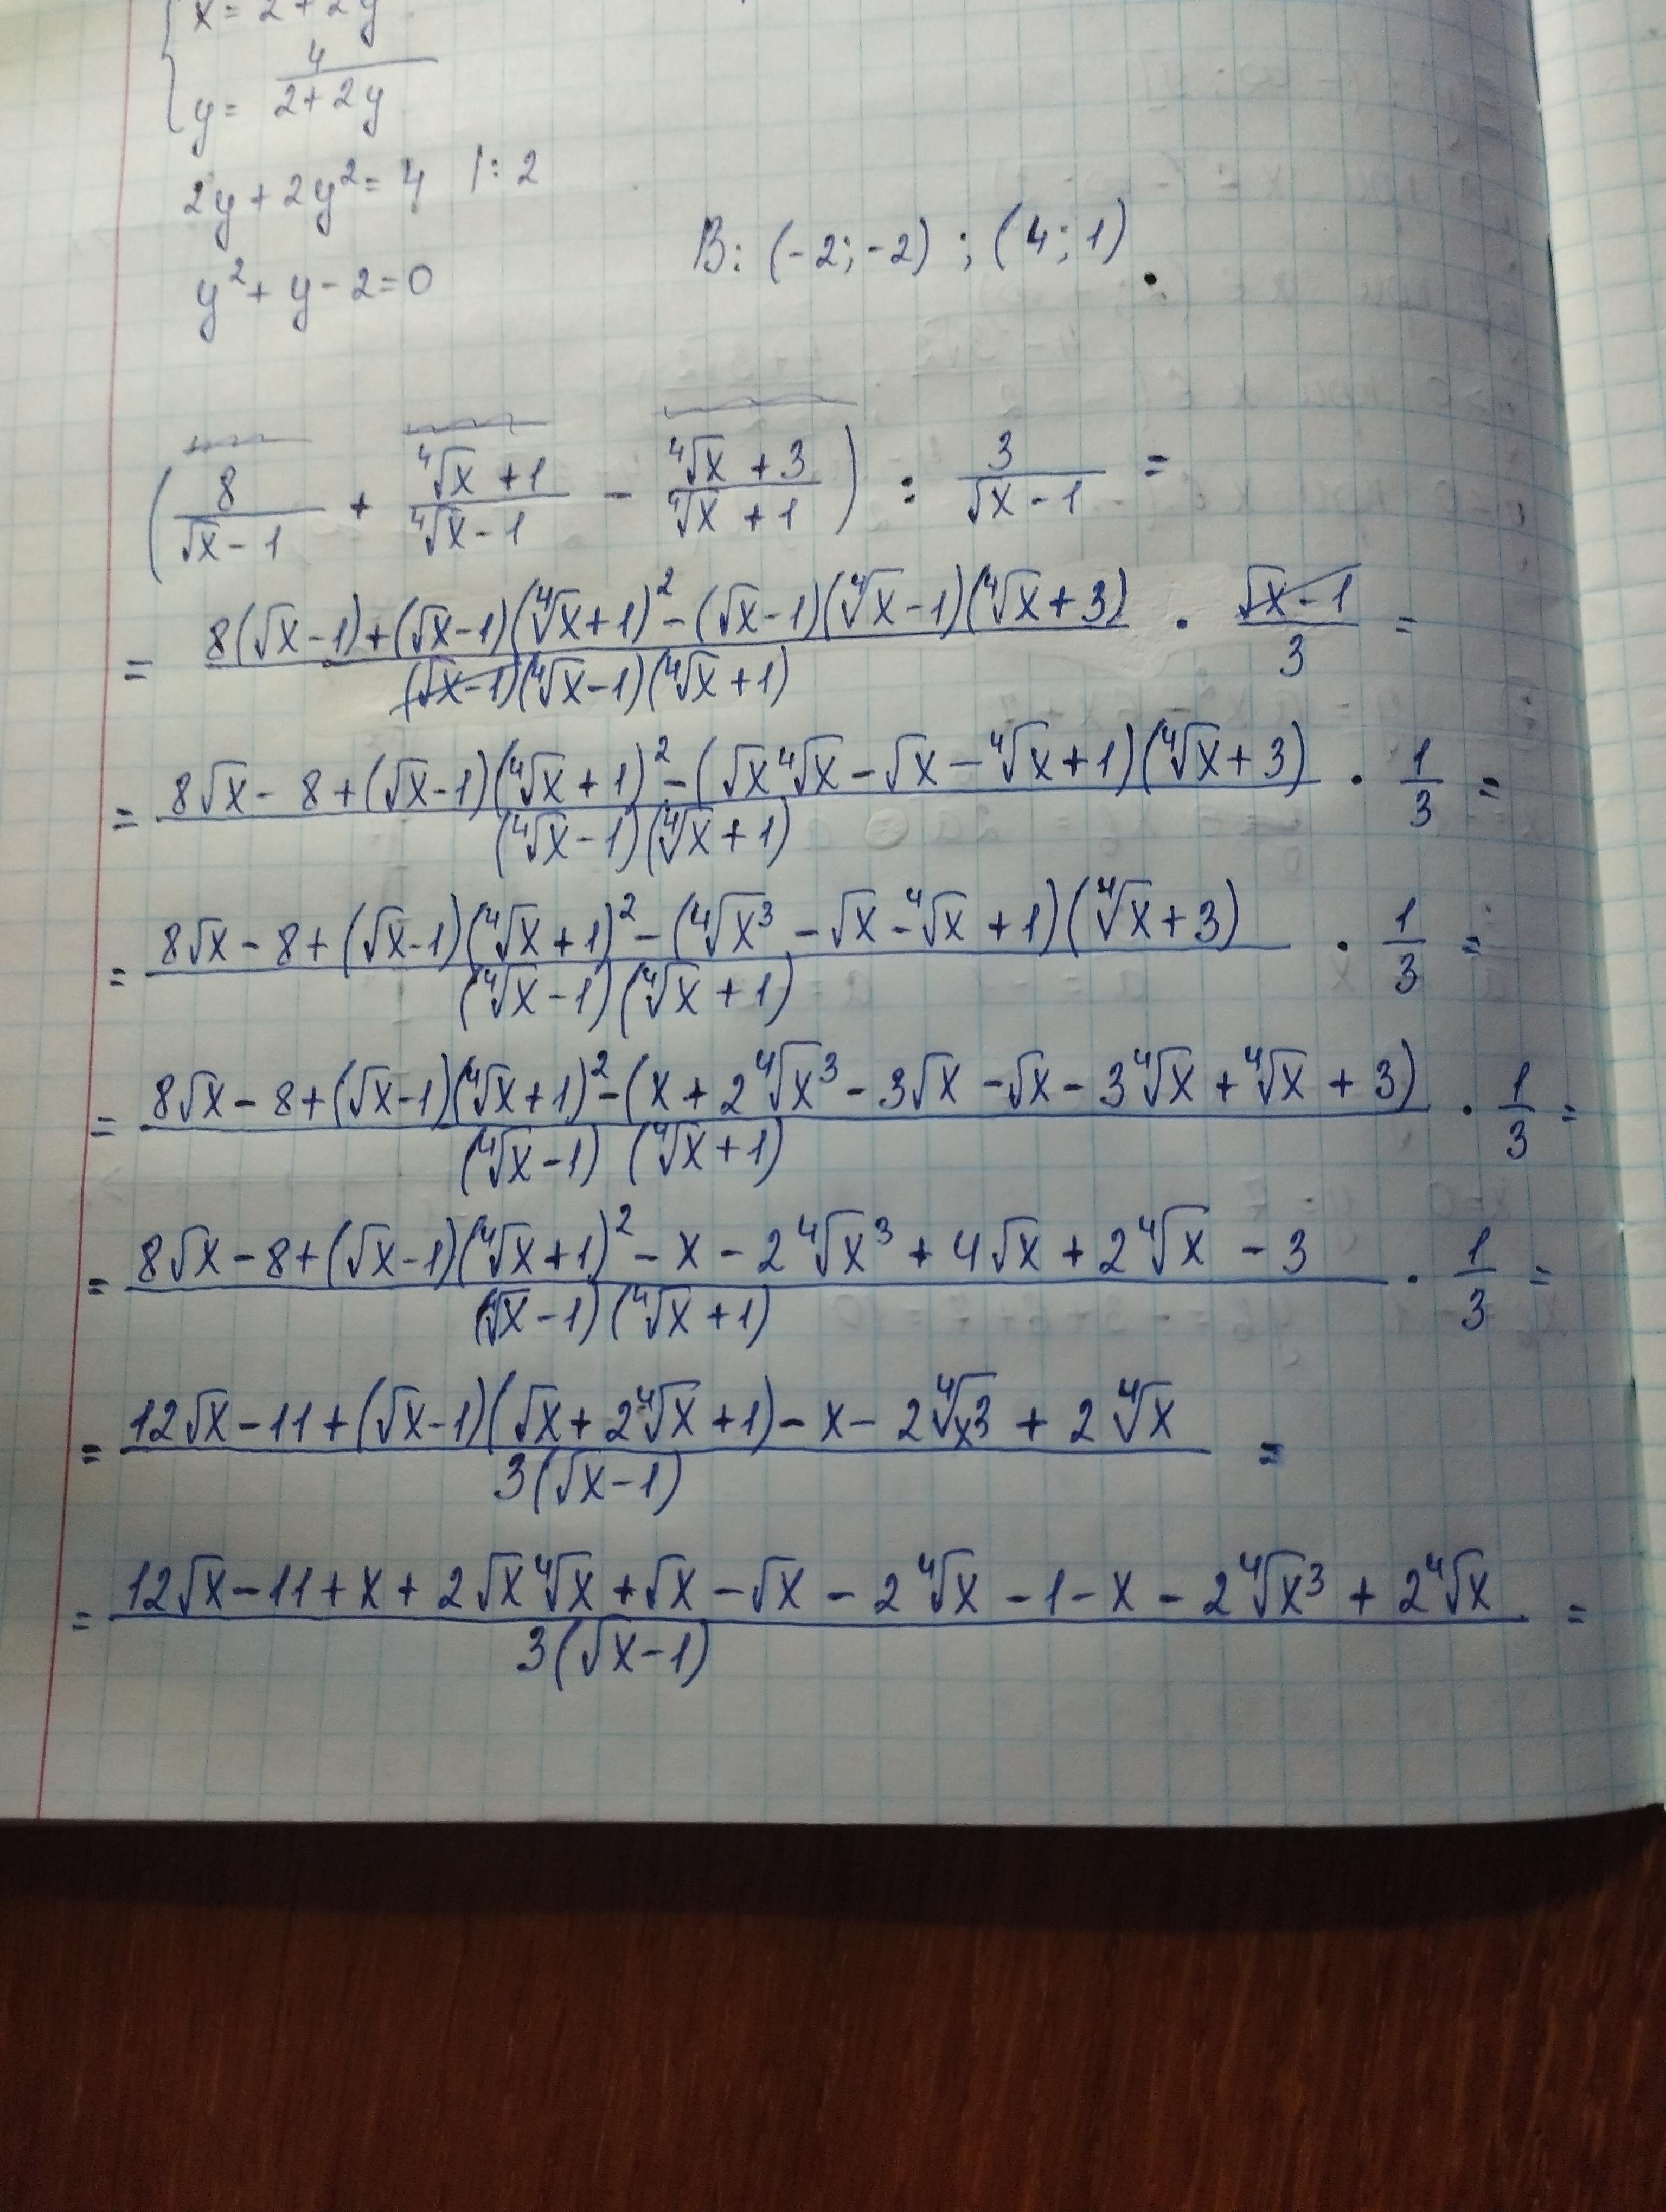 {x = 2 + 2y
y = 4/(2+2y)
2y + 2y² = 4 |: 2
y² + y - 2 = 0
В: (-2; -2) ; (4; 1).
(8/(√x - 1) + (⁴√x + 1)/(⁴√x - 1) - (⁴√x + 3)/(⁴√x + 1)) : 3/(√x - 1) =
= (8(√x - 1) + (√x - 1)(⁴√x + 1)² - (√x - 1)(⁴√x - 1)(⁴√x + 3))/((√x - 1)(⁴√x - 1)(⁴√x + 1)) · (√x - 1)/3 =
= (8√x - 8 + (√x - 1)(⁴√x + 1)² - (√x⁴√x - √x - ⁴√x + 1)(⁴√x + 3))/((⁴√x - 1)(⁴√x + 1)) · 1/3 =
= (8√x - 8 + (√x - 1)(⁴√x + 1)² - (⁴√x³ - √x - ⁴√x + 1)(⁴√x + 3))/((⁴√x - 1)(⁴√x + 1)) · 1/3 =
= (8√x - 8 + (√x - 1)(⁴√x + 1)² - (x + 2⁴√x³ - 3√x - √x - 3⁴√x + ⁴√x + 3))/((⁴√x - 1)(⁴√x + 1)) · 1/3 =
= (8√x - 8 + (√x - 1)(⁴√x + 1)² - x - 2⁴√x³ + 4√x + 2⁴√x - 3)/((⁴√x - 1)(⁴√x + 1)) · 1/3 =
= (12√x - 11 + (√x - 1)(√x + 2⁴√x + 1) - x - 2⁴√x³ + 2⁴√x)/(3(√x - 1)) =
= (12√x - 11 + x + 2√x⁴√x + √x - √x - 2⁴√x - 1 - x - 2⁴√x³ + 2⁴√x)/(3(√x - 1)) =